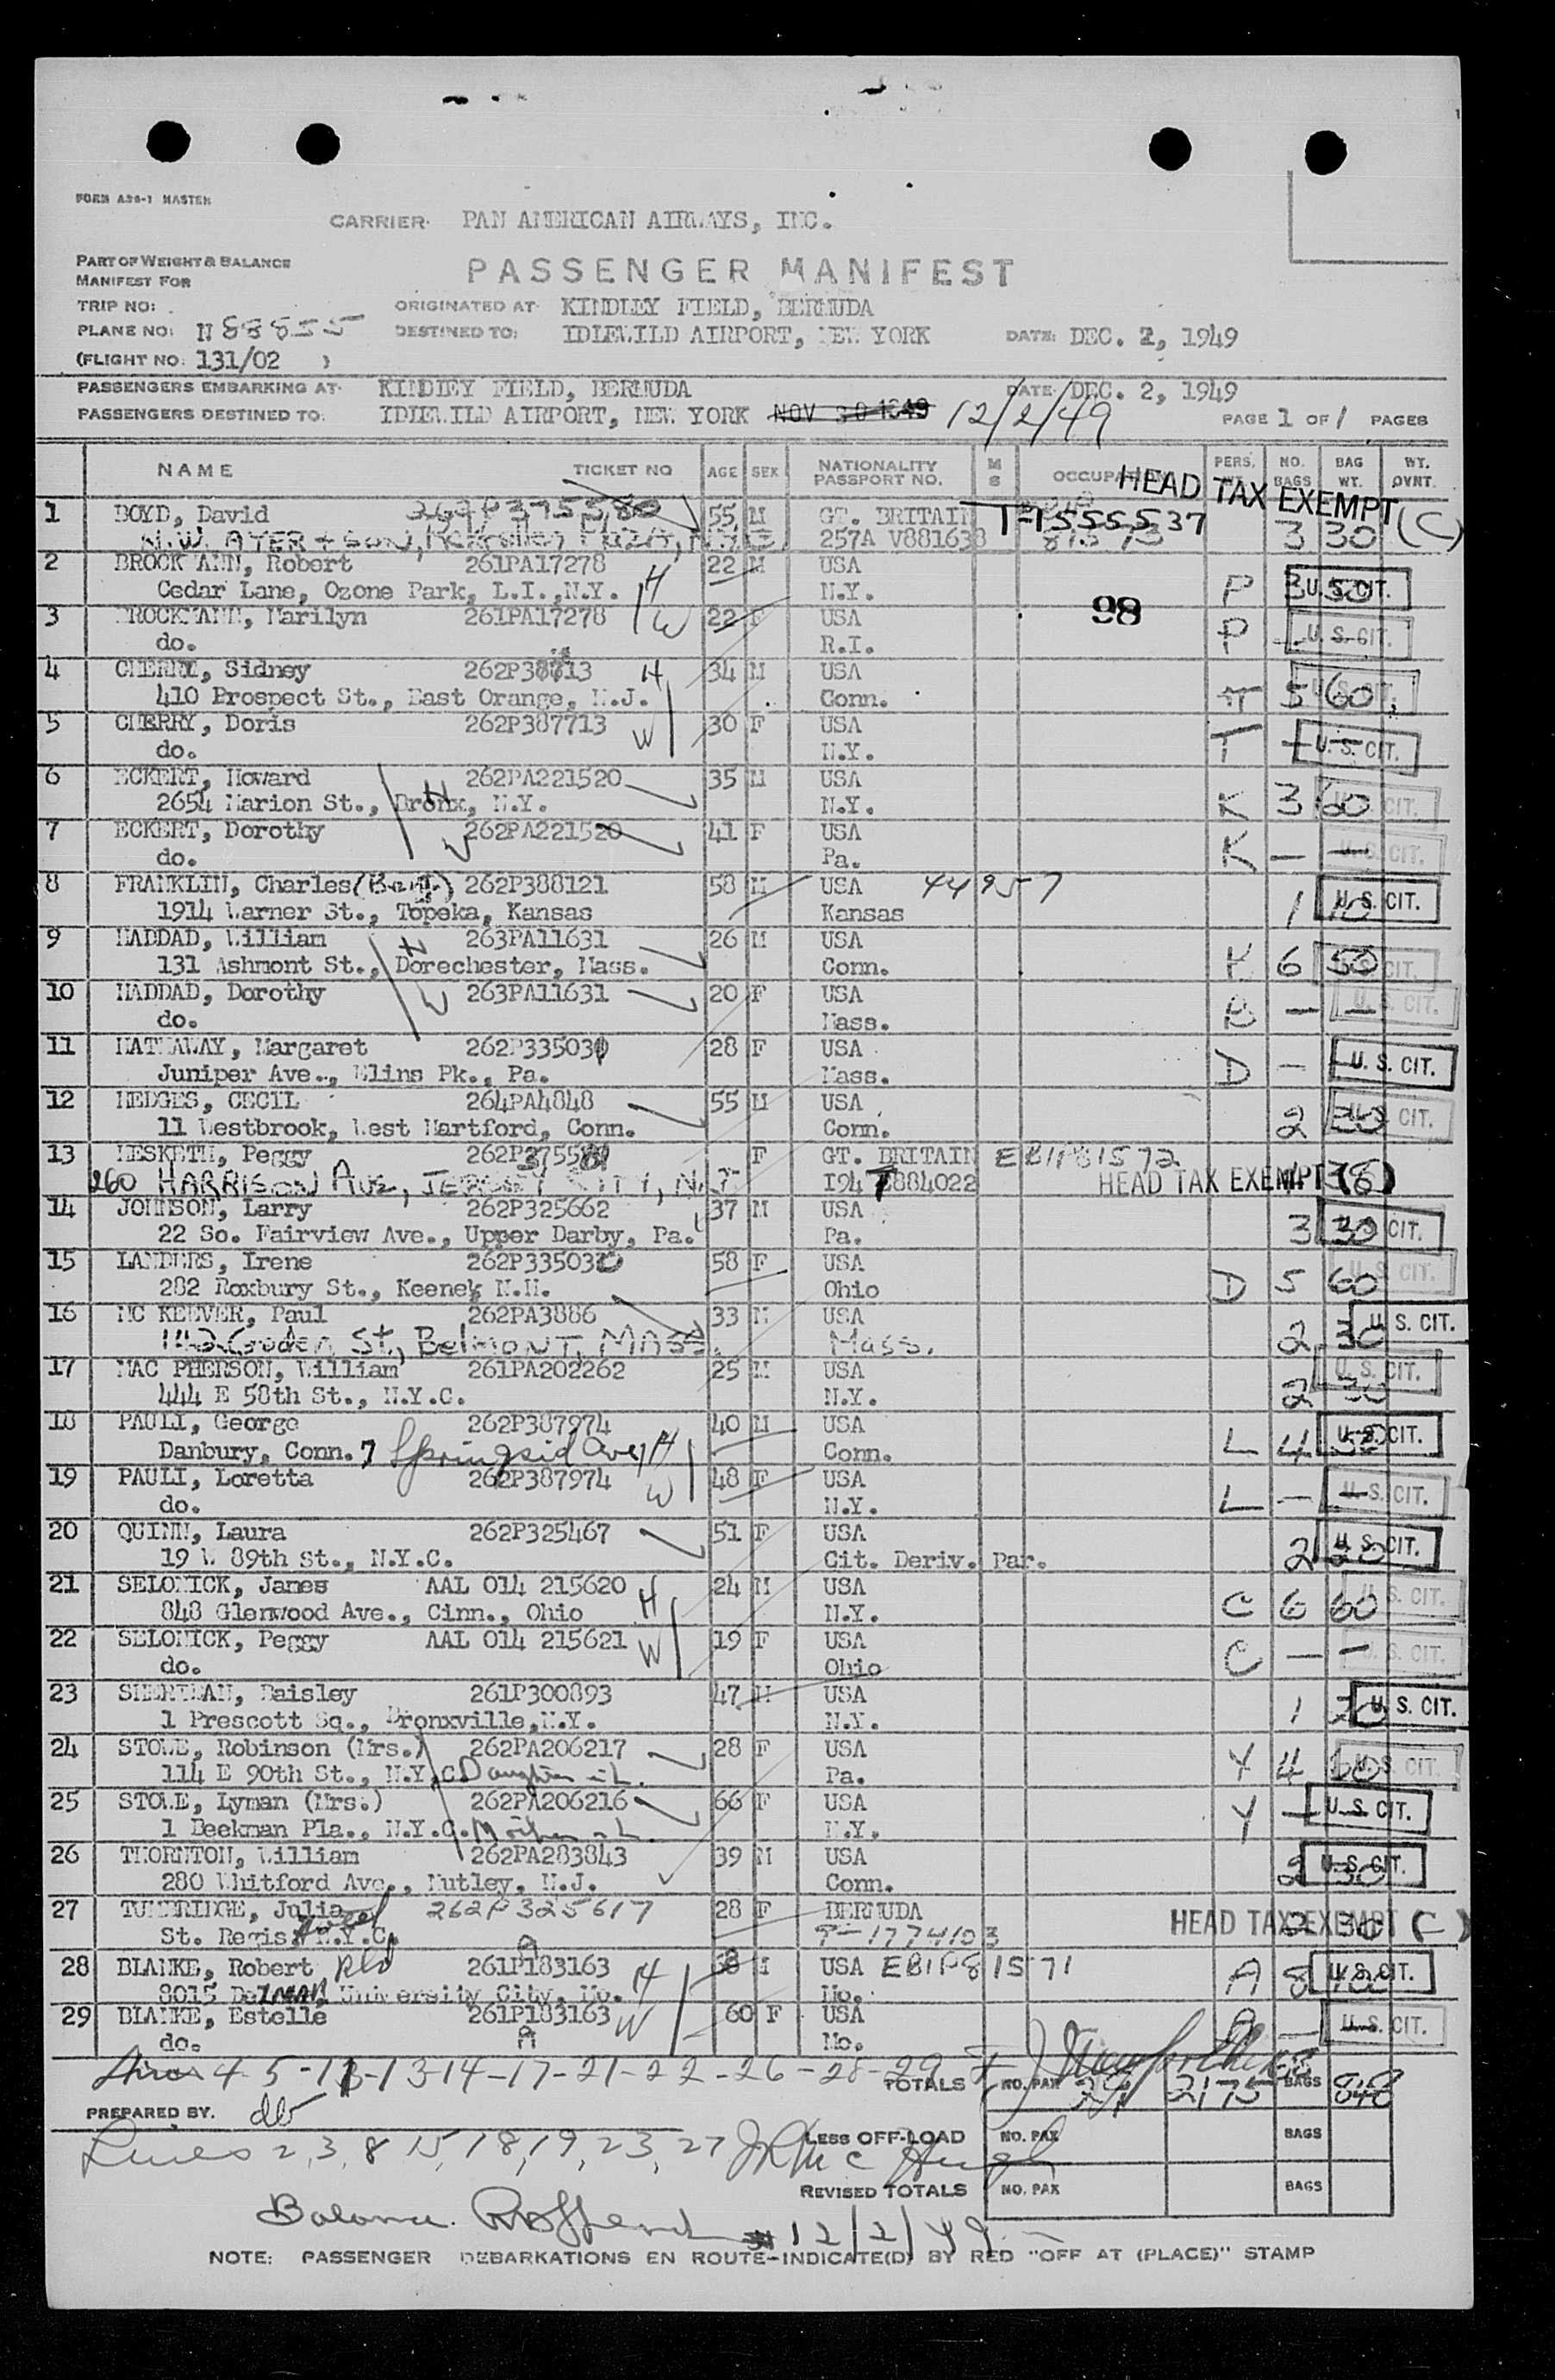 FORM A36-1 MASTER
CARRIER: PAN AMERICAN AIRWAYS, INC.
PART OF WEIGHT & BALANCE
MANIFEST FOR
PASSENGER MANIFEST
TRIP NO:
ORIGINATED AT: KINDLEY FIELD, BERMUDA
PLANE NO: N 88855
DESTINED TO: IDLEWILD AIRPORT, NEW YORK DATE: DEC. 2, 1949
(FLIGHT NO: 131/02 )
PASSENGERS EMBARKING AT: KINDLEY FIELD, BERMUDA DATE: DEC. 2, 1949
PASSENGERS DESTINED TO: IDLEWILD AIRPORT, NEW YORK NOV 30 1949 12/2/49 PAGE 1 OF 1 PAGES
NAME TICKET NO AGE SEX NATIONALITY PASSPORT NO. M S OCCUPATION PERS. NO. BAGS BAG WT. WT. OVNT.
HEAD TAX EXEMPT (C)
1 BOYD, David 262P375580 55 M GT. BRITAIN T-1555537
N.W. AYER + SON, Rockefeller Plaza, N.Y.C. 257A V881638 3 30
2 BROCKMANN, Robert 261PA17278 H 22 M USA
Cedar Lane, Ozone Park, L.I.,N.Y. N.Y. P 3 50 U. S. CIT.
3 BROCKMANN, Marilyn 261PA17278 W 22 F USA 98
do. R.I. P — U. S. CIT.
4 CHERRY, Sidney 262P387713 H 34 M USA
410 Prospect St., East Orange, N.J. Conn. T 5 60 U. S. CIT.
5 CHERRY, Doris 262P387713 W 30 F USA
do. N.Y. T — U. S. CIT.
6 ECKERT, Howard 262PA221520 35 M USA
2654 Marion St., Bronx, N.Y. H N.Y. K 3 60 U. S. CIT.
7 ECKERT, Dorothy W 262PA221520 41 F USA
do. Pa. K — — U. S. CIT.
8 FRANKLIN, Charles 262P388121 58 M USA 44957
1914 Warner St., Topeka, Kansas Kansas 1 10 U. S. CIT.
9 HADDAD, William H 263PA11631 26 M USA
131 Ashmont St., Dorechester, Mass. Conn. 6 50 U. S. CIT.
10 HADDAD, Dorothy W 263PA11631 20 F USA
do. Mass. — — U. S. CIT.
11 HATHAWAY, Margaret 262P335030 28 F USA
Juniper Ave., Elins Pk., Pa. Mass. D — U. S. CIT.
12 HEDGES, CECIL 264PA4848 55 M USA
11 Westbrook, West Hartford, Conn. Conn. 2 U. S. CIT.
13 HESKETH, Peggy 262P375581 F GT. BRITAIN EB11P81572
260 HARRISON AVE, JERSEY CITY, N.J. I94 T884022 HEAD TAX EXEMPT (8)
14 JOHNSON, Larry 262P325662 37 M USA
22 So. Fairview Ave., Upper Darby, Pa. Pa. 3 30 U. S. CIT.
15 LANDERS, Irene 262P335030 58 F USA
282 Roxbury St., Keene, N.H. Ohio D 5 60 U. S. CIT.
16 MC KEEVER, Paul 262PA3886 33 M USA
Goden St., Belmont, Mass. Mass. 2 30 U. S. CIT.
17 MAC PHERSON, William 261PA202262 25 M USA
444 E 58th St., N.Y.C. N.Y. 2 30 U. S. CIT.
18 PAULI, George 262P387974 40 M USA
Danbury, Conn. 7 Springsid Ave H Conn. L 4 50 U. S. CIT.
19 PAULI, Loretta 262P387974 W 48 F USA
do. N.Y. L — U. S. CIT.
20 QUINN, Laura 262P325467 51 F USA
19 W 89th St., N.Y.C. Cit. Deriv. Par. 2 20 U. S. CIT.
21 SELONICK, James AAL 014 215620 H 24 M USA
848 Glenwood Ave., Cinn., Ohio N.Y. C 6 60 U. S. CIT.
22 SELONICK, Peggy AAL 014 215621 W 19 F USA
do. Ohio C — — U. S. CIT.
23 SHERIDAN, Paisley 261P300893 47 M USA
1 Prescott Sq., Bronxville,N.Y. N.Y. 1 20 U. S. CIT.
24 STOWE, Robinson (Mrs.) 262PA206217 28 F USA
114 E 90th St., N.Y.C. Daughter in L. Pa. Y 4 60 U. S. CIT.
25 STOWE, Lyman (Mrs.) 262PA206216 66 F USA
1 Beekman Pla., N.Y.C. Mother in L. N.Y. Y — U. S. CIT.
26 THORNTON, William 262PA283843 39 M USA
280 Whitford Ave., Nutley, N.J. Conn. 2 30 U. S. CIT.
27 TUMBRIDGE, Julia 262P325617 28 F BERMUDA
St. Regis Hotel N.Y.C. T-1774103 HEAD TAX EXEMPT (C) 2 30
28 BLANKE, Robert 261P183163 H M USA EB1P81571
8015 Delmar, University City, Mo. A Mo. A 8 U. S. CIT.
29 BLANKE, Estelle 261P183163 W 60 F USA
do. A Mo. A — U. S. CIT.
4-5-11-13-14-17-21-22-26-28-29
TOTALS NO. PAX 29 BAGS
PREPARED BY.
Lines 2, 3, 8, 15, 18, 19, 23, 27 LESS OFF-LOAD NO. PAX BAGS
REVISED TOTALS NO. PAX BAGS
Balance 12/2/49
NOTE: PASSENGER DEBARKATIONS EN ROUTE-INDICATE(D) BY RED "OFF AT (PLACE)" STAMP